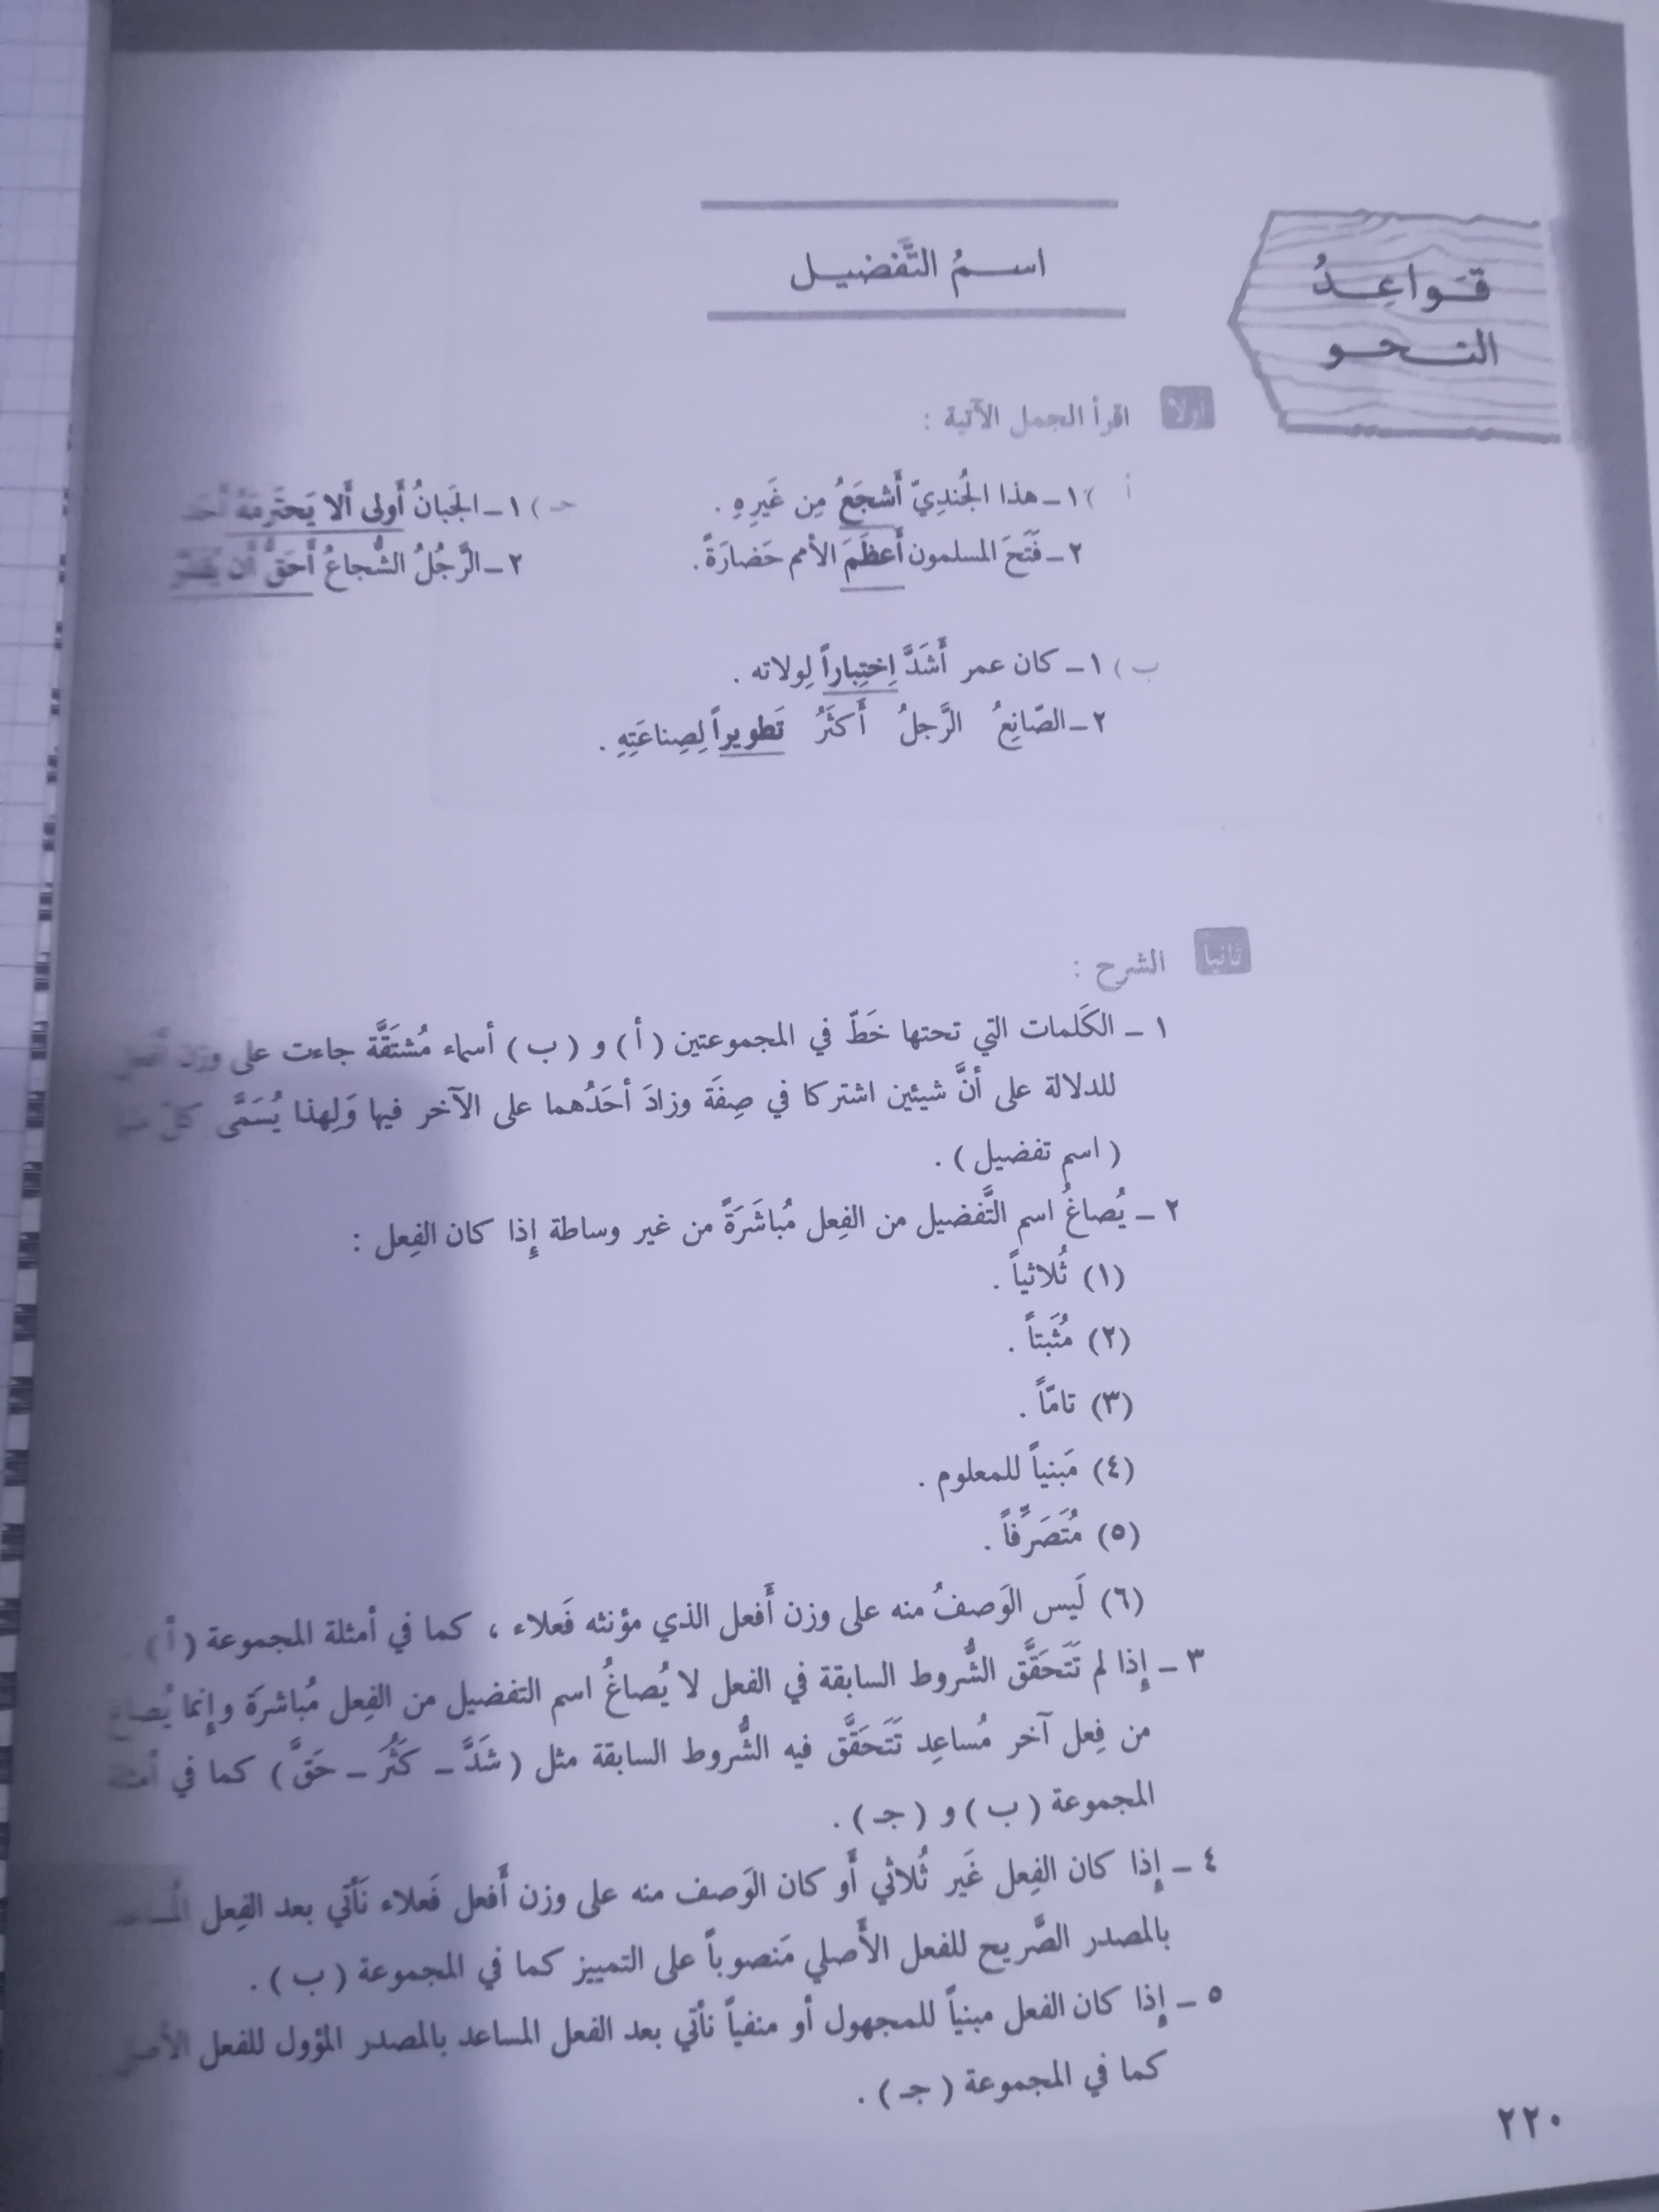 قَوَاعِدُ
النحو
اسمُ التَّفضيل
أولا اقرأ الجمل الآتية :
أ ) ١ – هذا الجُنديّ أَشجَعُ مِن غَيرِهِ .
٢ – فَتَحَ المسلمون أَعظَمَ الأمم حَضارَةً .
جـ ) ١ – الجَبانُ أَولى أَلا يَحتَرِمَهُ أَحد
٢ – الرَّجُلُ الشُّجاعُ أَحَقُّ أن
ب ) ١ – كان عمر أَشَدَّ اِختِباراً لِولاته .
٢ – الصّانِعُ الرَّجلُ أَكثَرُ تَطويراً لِصِناعَتِهِ .
ثانيا الشرح :
١ – الكَلمات التي تحتها خَطّ في المجموعتين ( أ ) و ( ب ) أسماء مُشتَقَّة جاءت على وزن أفعل
للدلالة على أنَّ شيئين اشتركا في صِفَة وزادَ أحَدُهما على الآخر فيها وَلِهذا يُسَمَّى كلّ منها
( اسم تفضيل ) .
٢ – يُصاغُ اسم التَّفضيل من الفِعل مُباشَرَةً من غير وساطة إِذا كان الفِعل :
(١) ثُلاثياً .
(٢) مُثبَتاً .
(٣) تامّاً .
(٤) مَبنياً للمعلوم .
(٥) مُتَصَرِّفاً .
(٦) لَيس الوَصفُ منه على وزن أَفعل الذي مؤنثه فَعلاء ، كما في أمثلة المجموعة ( أ ) .
٣ – إِذا لم تَتَحَقَّق الشُّروط السابقة في الفعل لا يُصاغُ اسم التفضيل من الفِعل مُباشرَة وإِنما يُصاغ
من فِعل آخر مُساعِد تَتَحَقَّق فيه الشُّروط السابقة مثل ( شَدَّ – كَثُرَ – حَقَّ ) كما في أمثلة
المجموعة ( ب ) و ( جـ ) .
٤ – إِذا كان الفِعل غَير ثُلاثي أَو كان الوَصف منه على وزن أَفعل فَعلاء نَأتي بعد الفِعل المساعد
بالمصدر الصَّريح للفعل الأَصلي مَنصوباً على التمييز كما في المجموعة ( ب ) .
٥ – إِذا كان الفعل مبنياً للمجهول أو منفياً نأتي بعد الفعل المساعد بالمصدر المؤول للفعل الأصلي
كما في المجموعة ( جـ ) .
٢٢٠